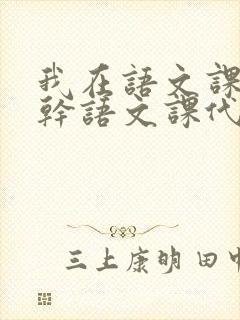 我在語文課
幹語文課代
三上康明 田中